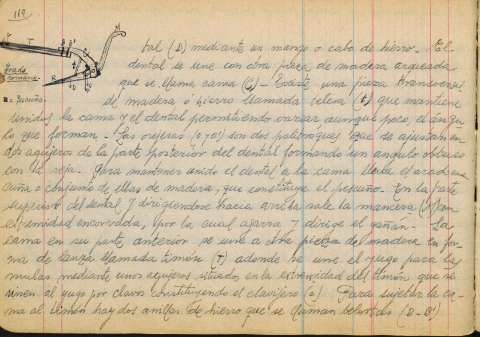 119
Arado
romano.
tal (D) mediante un mango o cabo de hierro. El
dental se une con otra pieza de madera arqueada
que se llama cama (C). Existe una pieza transversal
de madera ó hierro llamada telera (t) que mantiene
unidos la cama y el dental permitiendo variar aunque poco, el ángu
lo que forman. Las orejeras (o y o') son dos palitroques que se ajustan en
dos agujeros de la parte posterior del dental formando un angulo obtuso
con la reja. Para mantener unido el dental a la cama lleva el arado una
cuña o conjunto de ellas de madera, que constituye el pescuño. En la parte
superior del dental y dirigiendose hacia arriba sale la mancera (M) con
extremidad encorvada, por la cual agarra y dirige el gañán. La
cama en su parte anterior se une a otra pieza de madera en for
ma de lanza llamada timón (T) adonde se une el yugo para las
mulas mediante unos agujeros situados en la extremidad del timón que se
unen al yugo por clavos constituyendo el clavijero (a). Para sujetar la ca-
ma al timón hay dos anillas de hierro que se llaman belortas (B-B')